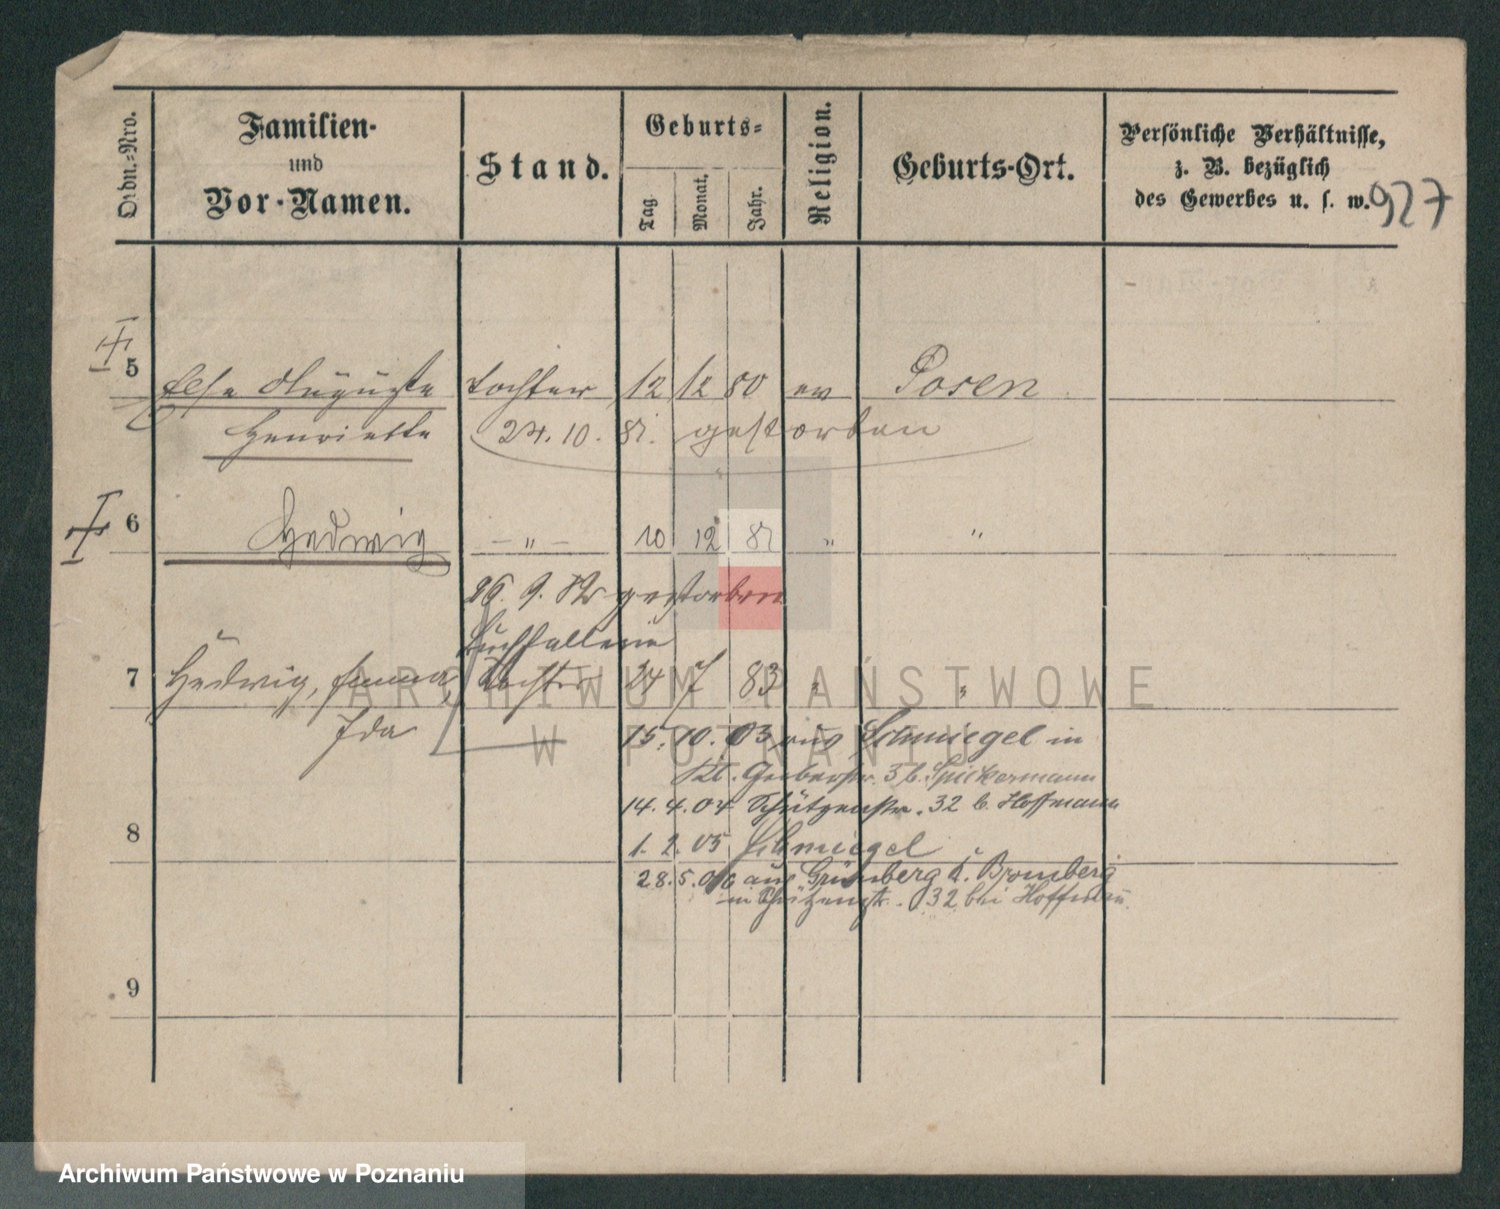 Ordn.-Nro.
Familien-
und
Vor-Namen.
Stand.
Geburts-
Tag.
Monat.
Jahr.
Religion.
Geburts-Ort.
Persönliche Verhältnisse,
z. B. bezüglich
des Gewerbes u. s. w.
927
5 Else Auguste Tochter 12 12 80 ev Posen
Henriette 24. 10. 81. gestorben
6 Hedwig — " — 10 12 81 " "
26. 9. 82 gestorben
Buchhalterin
7 Hedwig, Emma, Tochter 24 7 83 " "
Ida
15. 10. 03 aus Schmiegel in
Kl. Gerberstr. 3 b. Spickermann
14. 4. 04 Schützenstr. 32 b. Hoffmann
8
1. 2. 05 Schmiegel
28. 5. 06 aus Grünberg i. Bromberg
in Schützenstr. 32 bei Hoffmann
9
ARCHIWUM PAŃSTWOWE
W POZNANIU
Archiwum Państwowe w Poznaniu